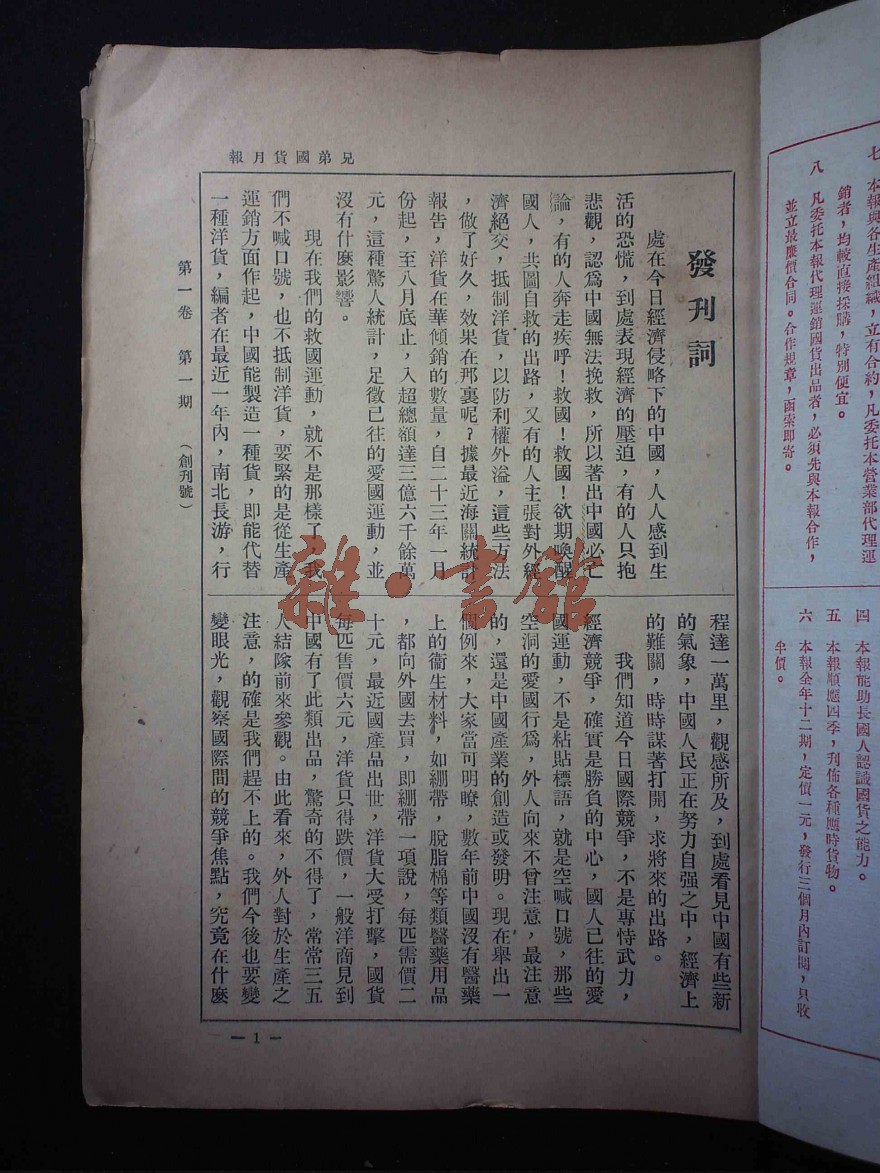 七 本報與各生產組織，立有合約，凡委托本營業部代理運
銷者，均較直接採購，特別便宜。
八 凡委托本報代理運銷國貨出品者，必須先與本報合作，
並立最廉價合同。合作規章，函索即寄。
四 本報能助長國人認識國貨之能力。
五 本報順應四季，刊佈各種應時貨物。
六 本報全年十二期，定價一元，發行三個月內訂閱，只收
半價。
兄弟國貨月報
發刊詞
處在今日經濟侵略下的中國，人人感到生
活的恐慌，到處表現經濟的壓迫，有的人只抱
悲觀，認爲中國無法挽救，所以著出中國必亡
論，有的人奔走疾呼！救國！救國！欲期喚醒
國人，共圖自救的出路，又有的人主張對外經
濟絕交，抵制洋貨，以防利權外溢，這些方法
，做了好久，效果在那裏呢？據最近海關統計
報告，洋貨在華傾銷的數量，自二十三年一月
份起，至八月底止，入超總額達三億六千餘萬
元，這種驚人統計，足徵已往的愛國運動，並
沒有什麽影響。
現在我們的救國運動，就不是那樣了，我
們不喊口號，也不抵制洋貨，要緊的是從生產
運銷方面作起，中國能製造一種貨，即能代替
一種洋貨，編者在最近一年內，南北長游，行
程達一萬里，觀感所及，到處看見中國有些新
的氣象，中國人民正在努力自强之中，經濟上
的難關，時時謀著打開，求將來的出路。
我們知道今日國際競爭，不是專恃武力，
經濟競爭，確實是勝負的中心，國人已往的愛
國運動，不是粘貼標語，就是空喊口號，那些
空洞的愛國行爲，外人向來不曾注意，最注意
的，還是中國產業的創造或發明。現在舉出一
個例來，大家當可明瞭，數年前中國沒有醫藥
上的衞生材料，如綳帶，脫脂棉等類醫藥用品
，都向外國去買，即綳帶一項說，每匹需價二
十元，最近國產品出世，洋貨大受打擊，國貨
每匹售價六元，洋貨只得跌價，一般洋商見到
中國有了此類出品，驚奇的不得了，常常三五
人結隊前來參觀。由此看來，外人對於生產之
注意，的確是我們趕不上的。我們今後也要變
變眼光，觀察國際間的競爭焦點，究竟在什麽
第一卷 第一期 （創刊號）
— 1 —
雜·書館